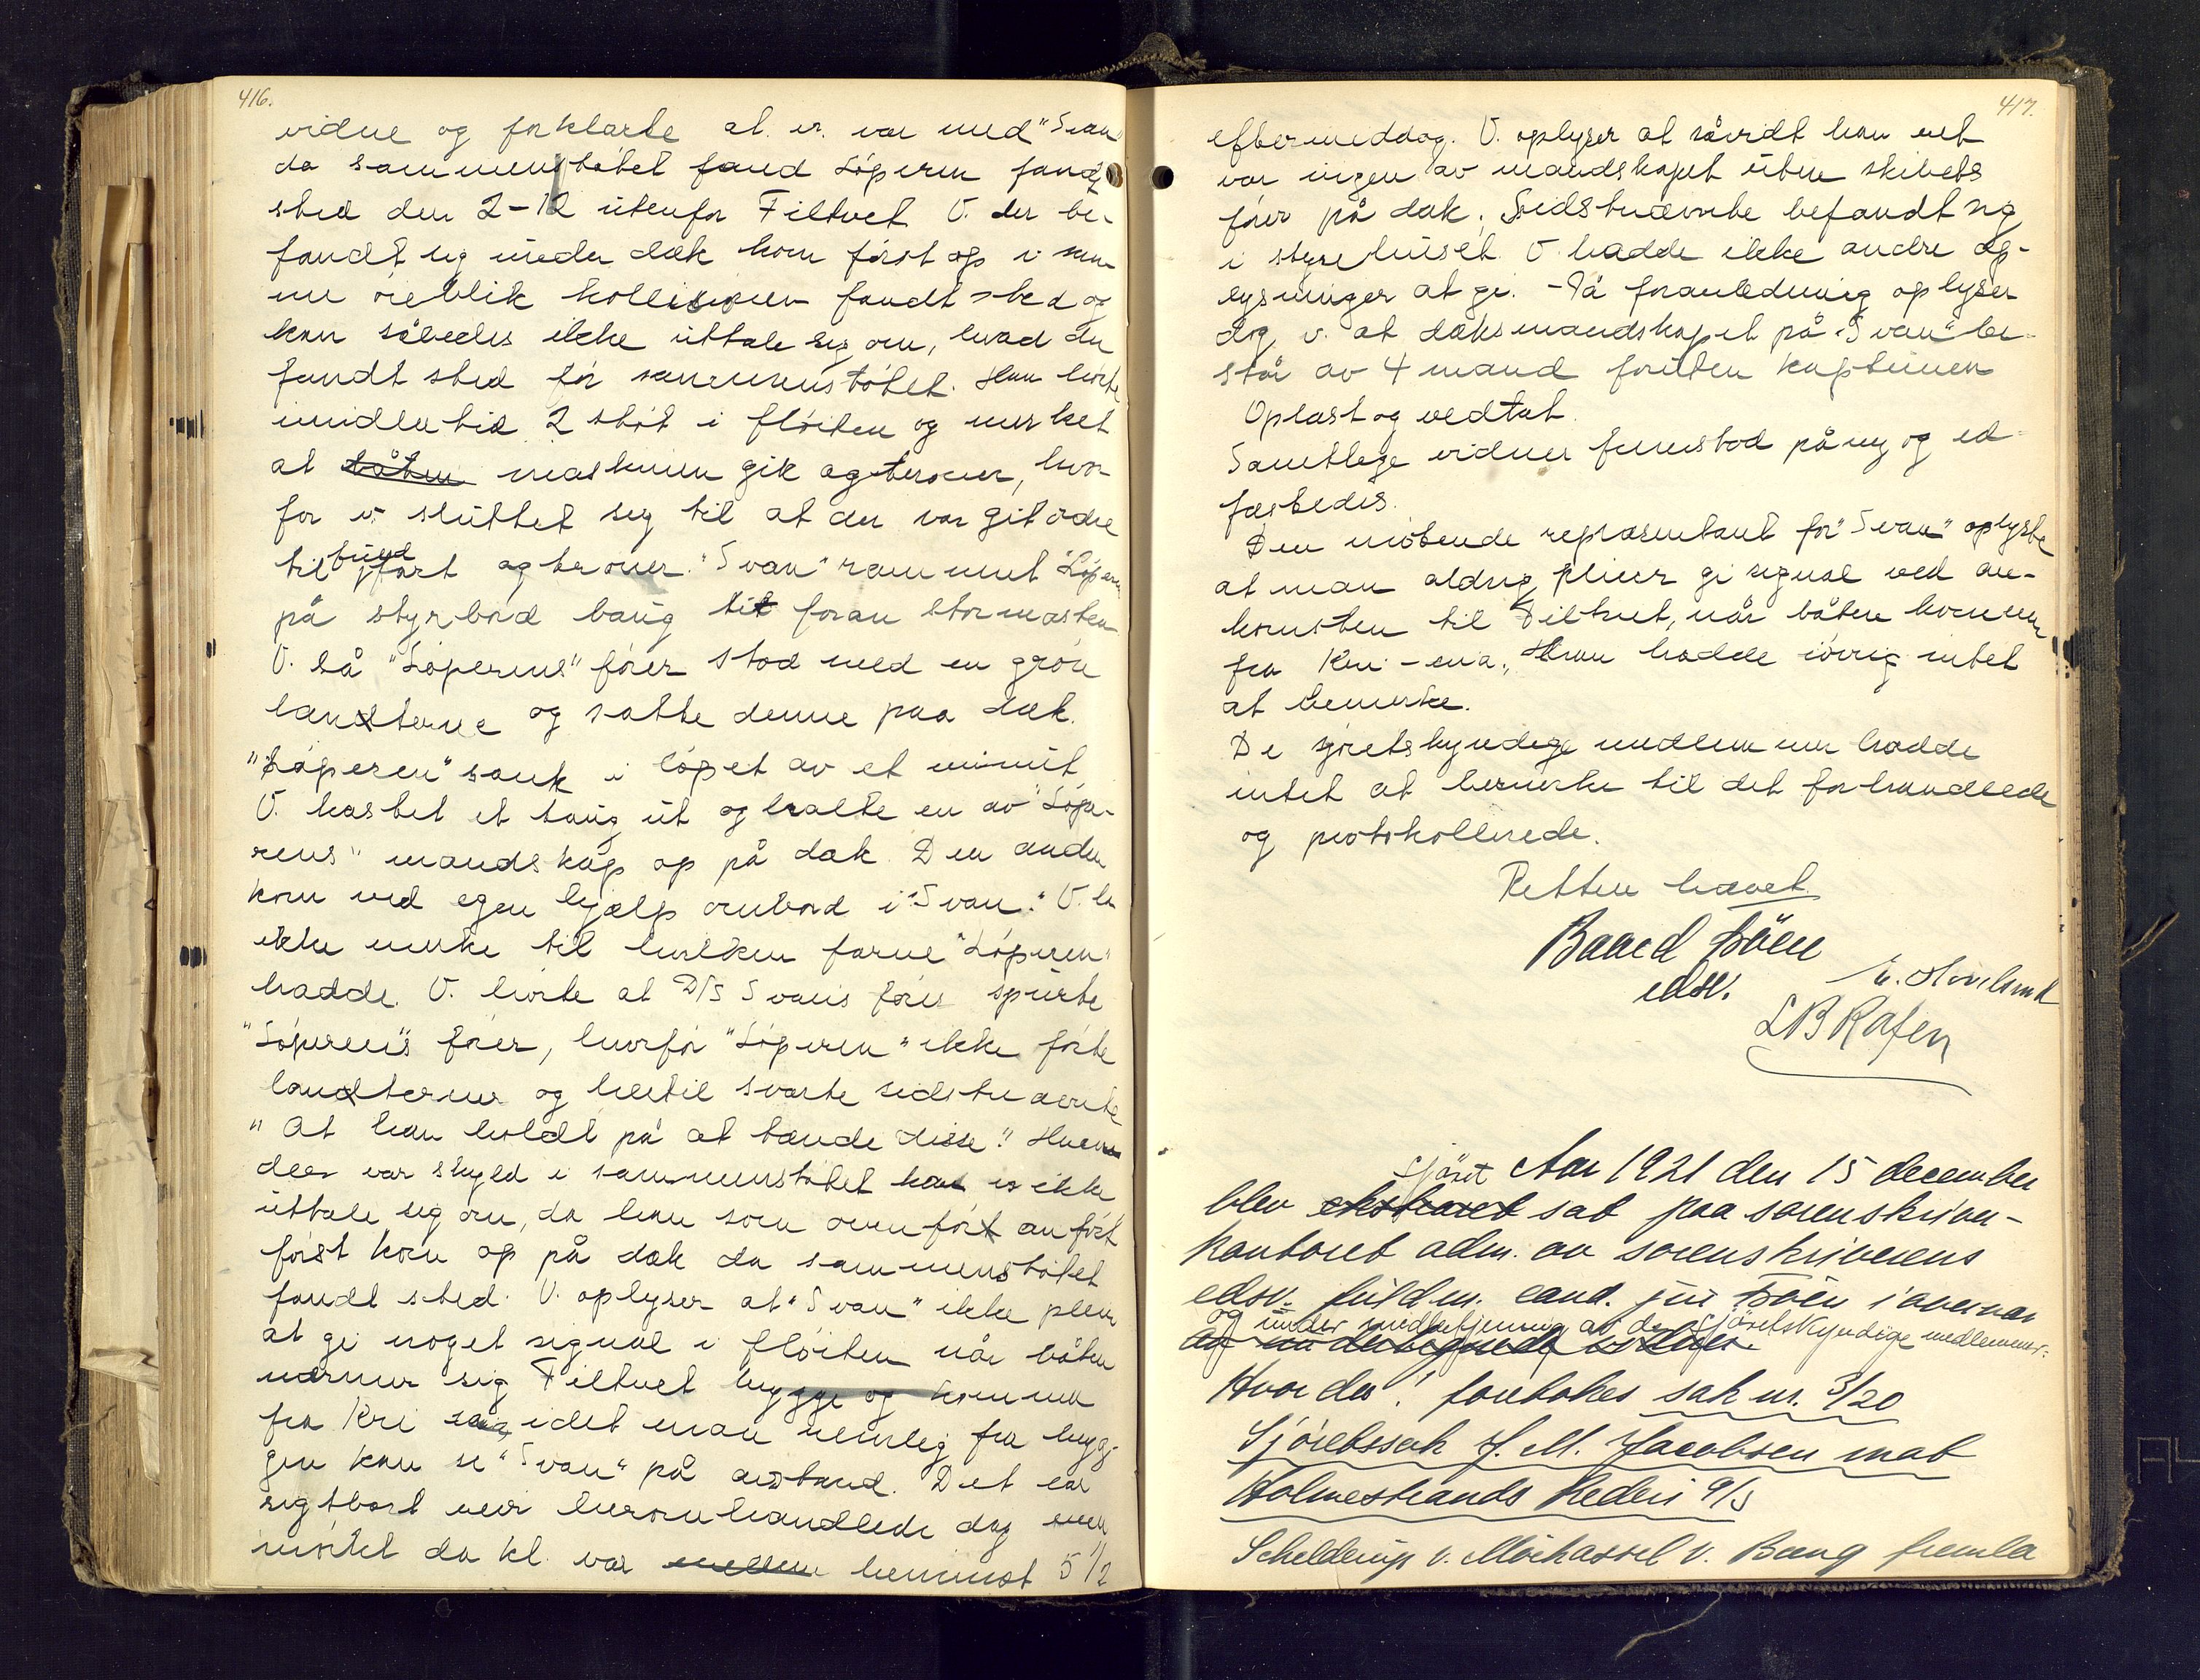 416.
vidne og forklarte at v. var med "Svan"
da sammenstøtet fand Löperen fandt
sted den 2-12 utenfor Filtvet V. der be-
fandt sig under dæk kom først op i sam-
me øieblik kollisionen fandt sted og
kan således ikke uttale sig om, hvad der
fandt sted før sammenstøtet. Han hørte
imidlertid 2 støt i fløiten og merket
at båten maskinen gik agterover, hvor-
for v. sluttet sig til at der var git ordre
til fuld fart agterover. "Svan" rammet "Løperen
på styrbord baug tæt foran stormasten
V. så "Løperens" fører stod med en grøn
lanterne og satte denne paa dæk.
"Løperen" sank i løpet av et minut
V. kastet et taug ut og halte en av "Løpe-
rens" mandskap op på dæk. Den anden
kom ved egen hjælp ombord i "Svan." V. la
ikke merke til hvilken farve "Løperen"
hadde. V. hørte at D/S Svans fører spurte
"Løperens fører, hvorfor "Løperen" ikke førte
lanterner og hertil svarte sidstnævnte
"At han holdt på at tænde disse". Hvem
der var skyld i sammenstøtet kan v. ikke
uttale sig om, da han som ovenfor anført
først kom op på dæk da sammenstøtet
fandt sted. V. oplyser at "Svan" ikke pleier
at gi noget signal i fløiten når båten
nærmer sig Filtvet brygge og kommer
fra Kri idet man nemlig fra bryg-
gen kan se "Svan" på avstand. Det var
sigtbart veir heromhandlede dag men
mørket da kl. var mellem henimot 5 1/2
417.
eftermeddag. V. oplyser at såvidt han vet
var ingen av mandskapet uten skibets
fører på dæk. Sidstnævnte befandt sig
i styrehuset. V. hadde ikke andre op-
lysninger at gi. - På foranledning oplyser
dog v. at dæksmandskapet på "Svan" be-
står av 4 mand foruten kapteinen
Oplæst og vedtat.
Samtlige vidner fremstod på ny og ed-
fæstedes.
Den møtende repræsentant for "Svan" oplyste
at man aldrig pleier gi signal ved an-
komsten til Filtvet, når båten kommer
fra Kri-ania. Han hadde iøvrig intet
at bemerke.
De sjøretskyndige medlemmer hadde
intet at bemerke til det forhandlede
og protokollerede.
Retten hævet.
Baard Böen
edsv.
L B Rafen
sjöret Aar 1921 den 15 december
blev ekstraret sat paa sorenskriver-
kontoret adm. av sorenskriverens
edsv. fuldm. cand. jur Böen i overvær
og under medbetjening av de sjöretskyndige medlemmer:
av undertegnede vidner.
Hvorda! foretokes sak nr. 3/20
Sjöretssak J. M. Jacobsen mot
Holmestrands Rederi A/S
Schelderup v. Mörhassel v. Bang fremla